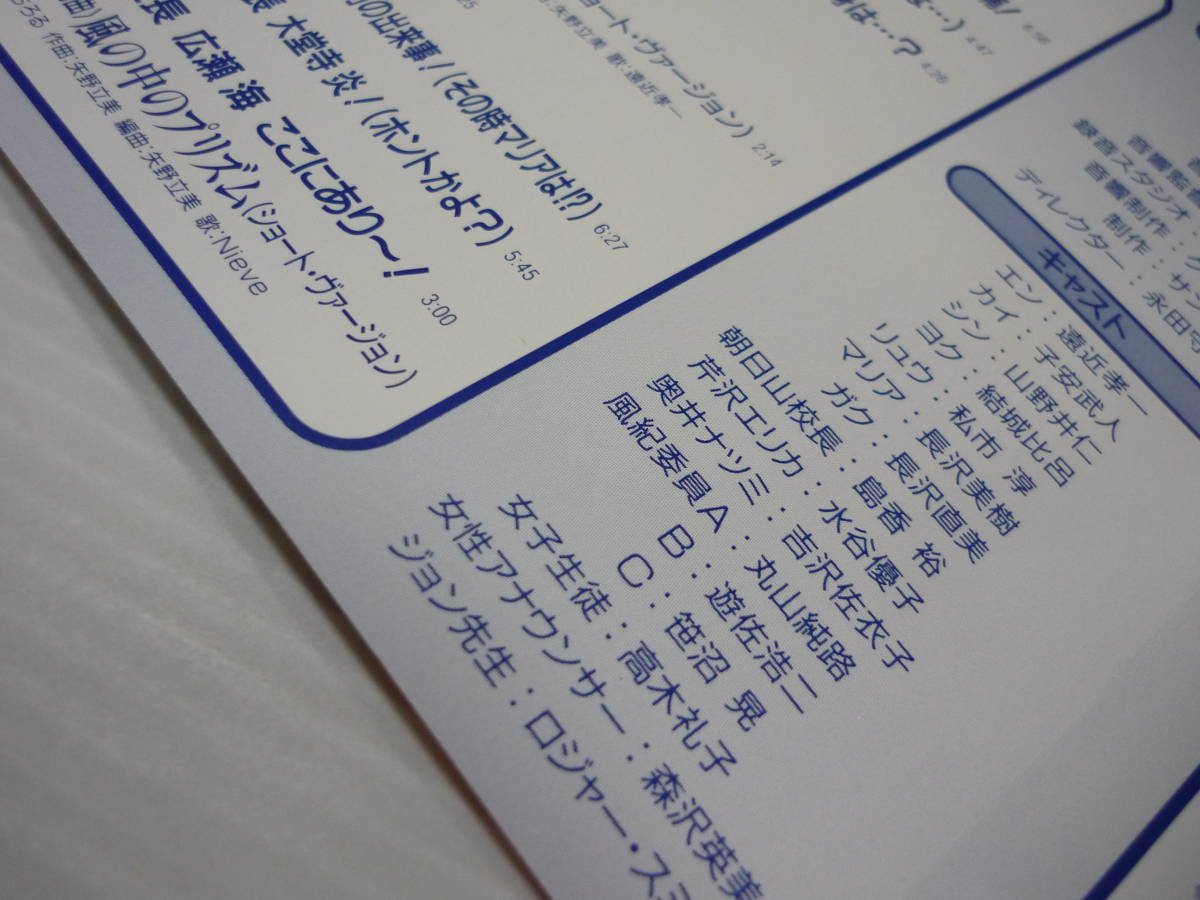 4:47
は…?
4:26
ョート・ヴァージョン) 2:14
矢野立美 歌:遠近孝一
の出来事!(その時マリアは!?) 6:27
長 大堂寺 炎!(ホントかよ?) 5:45
長 広瀬 海 ここにあり〜! 3:00
曲)風の中のプリズム(ショート・ヴァージョン)
作曲:矢野立美 編曲:矢野立美 歌:Nieve
録音スタジオ
音響制作:
制作:サン
ディレクター:永田守
キャスト
エン:遠近孝一
カイ:子安武人
シン:山野井仁
ヨク:結城比呂
リュウ:私市 淳
マリア:長沢美樹
ガク:長沢直美
朝日山校長:島香 裕
芹沢エリカ:水谷優子
奥井ナツミ:吉沢佐衣子
風紀委員A:丸山純路
B:遊佐浩二
C:笹沼 晃
女子生徒:高木礼子
女性アナウンサー:森沢英美
ジョン先生:ロジャー・ス